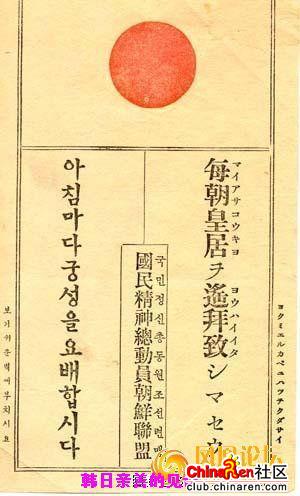 ヨクミエルカベニハツテクダサイ
マイアサコウキヨ ヨウハイイタ
毎朝皇居ヲ遙拜致シマセウ
국민정신총동원조선련맹
國民精神總動員朝鮮聯盟
아침마다궁성을요배합시다
보기쉬운벽에부치시요
论坛
ChinaRen社区
club.chinaren.com
韩日亲善的见